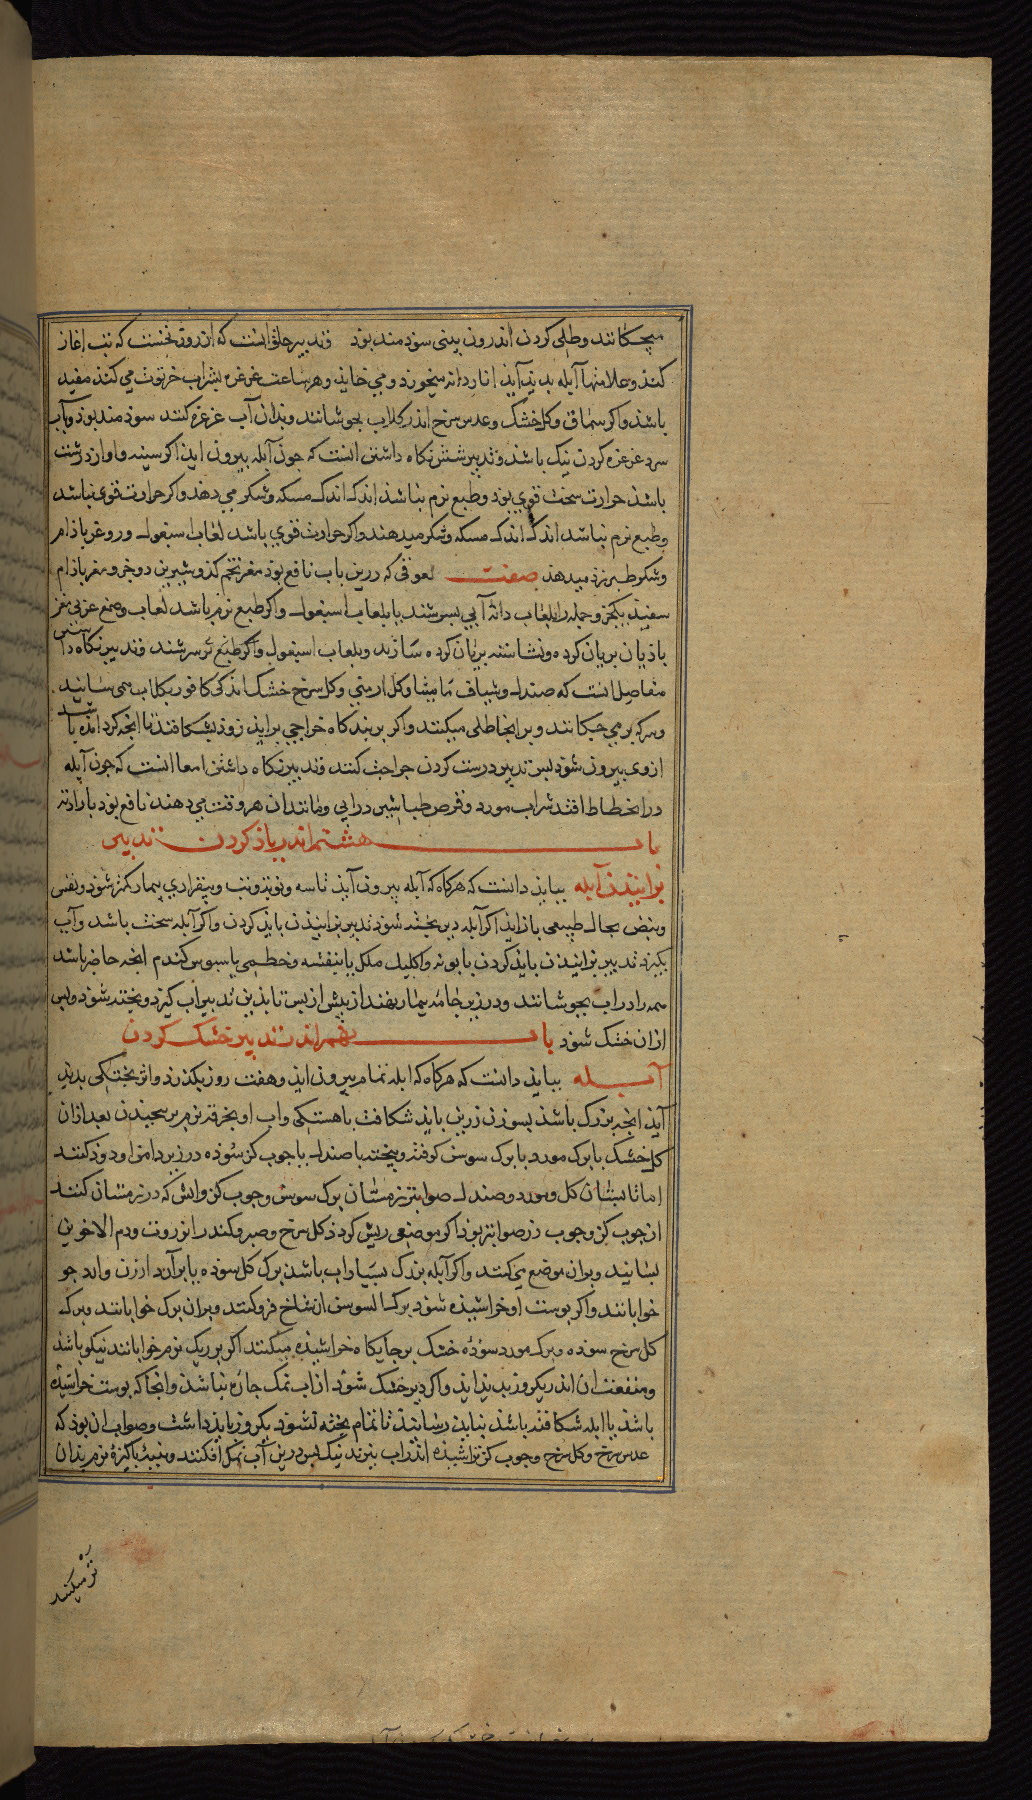 میچکانند وطلی کردن اندرون بینی سودمند بوذ وتدبیر حلق انست که از روز نخست که تب اغاز
کند وعلامتها آبله بدید آید انار دانه میخورد ومی خاید وهر ساعت غرغره بشراب خرتوت می کند مفید
باشد واکر سماق وکل خشک وعدس سرخ اندر کلاب بجوشانند وبدان آب غرغره کنند سودمند بوذ وبآب
سرد غرغره کردن نیک باشد وتدبیر شش نکاه داشتن انست که جون آبله بیرون اید اکر سینه واواز درشت
باشد حرارت سخت قوی بوذ وطبع نرم نباشد اندک اندک مسکه وشکر می دهد واکر حرارت قوی نباشد
وطبع نرم نباشد اندک اندک مسکه وشکر میدهند واکر حرارت قوی باشد لعاب اسبغول وروغن باذام
وشکر طبرزد میدهد صفت لعوقی که درین باب نافع بوذ مغز تخم کدو شیرین دو جزو مغز باذام
سفید یکجزو جمله را بلعاب دانه آبی بسرشند یا بلعاب اسبغول واکر طبع نرم باشد لعاب وصمغ عربی مغز
باذیان بریان کرده ونشاسته بریان کرده سازند وبلعاب اسبغول واکر طبع بر سرشند وتدبیر نکاه داشتن
مفاصل انست که صندل وشیاف مامیثا وکل ارمنی وکل سرخ خشک اندکی کافور بکلاب می سایند
وسرکه بر می جکانند وبر انجا طلی میکنند واکر بر بندکاه خراجی براید زود بشکافند تا انجه کرد امده باشد
ازوی بیرون شود بس تدبیر درست کردن جراحت کنند وتدبیر نکاه داشتن امعا انست که جون آبله
در انحطاط افتد شراب مورد وقرص طباشیر در ابی ومانندان هر وقت می دهند نافع بوذ باراده
باب هشتم اندر یاذ کردن تدبیر
بزانیدن آبله بباید دانست که هرکاه که آبله بیرون آید تاسه وتب وبیقراری بیمار کمتر شود ونفس
ونبض بحال طبیعی بازاید اکر آبله دیر بخته شود تدبیر بزانیدن باید کردن واکر آبله سخت باشد وآب
بکیرد تدبیر بزانیدن باید کردن بابونه واکلیل ملک یا بنفشه وخطمی یا سبوس کندم انجه حاضر باشد
همه را در اب بجوشانند ودر زیر جامه بیمار نهند از بیش از بس تا بذین تدبیر اب کیرد وبخته شود وبس
ازان خشک شود باب نهم اندر تدبیر خشک کردن
آبله بباید دانست که هرکاه که ابله تمام بیرون اید وهفت روز بکذرد واثر بختکی بدید
آید انجه بزرک باشد بسوزن زرین باید شکافت باهستکی واب او بخرقه نرم برمجیدن بعدازان
کل خشک یا برک مورد یا برک سوسن کوفته وبیخته یا صندل یا جوب کز سوده در زیر دامن او دود کنند
اما تابستان کل ومورد وصندل صوابتر زمستان برک سوسن وجوب کز واتش که در زمستان کنند
از جوب کز وجوب رز صوابتر بوذ اکر موضعی ریش کردد کل سرخ وصبر وکندر انزروت ودم الاخوین
بسایند وبران موضع می کنند واکر آبله بزرک بسیار اب باشد برک کل سوده یا بر آرد ارزن وارد جو
خوابانند واکر بوست او خراشیده شود برک السوسن از شاخ فرو کنند وبران برک خوابانند وبرک
کل سرخ سوده وبرک مورد سوده خشک بر جایکاه خراشیده میکنند اکر بر ریک نرم خوابانند نیکو باشد
ومنفعت ان اندر یکروز بدید اید واکر دیر خشک شود از اب نمک جاره نباشد وانجا که بوست خراشیده
باشد یا ابله شکافته باشد نباید رسانید تا تمام بخته نشود یکروز باید داشت وصواب ان بوذ که
عدس سرخ وکل سرخ وجوب کز تراشیده اندر اب ببزند نیک بس درین آب نمک افکنند وبنبه باکیزه نرم بدان
تر میکنند